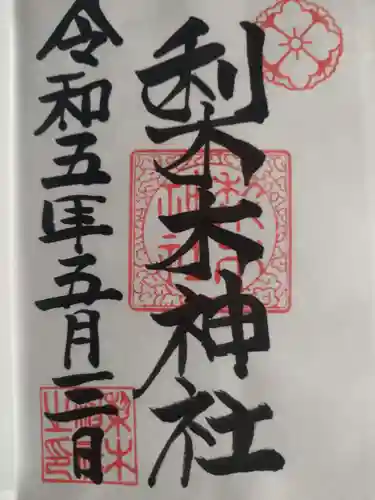 梨木神社
令和五年五月三日